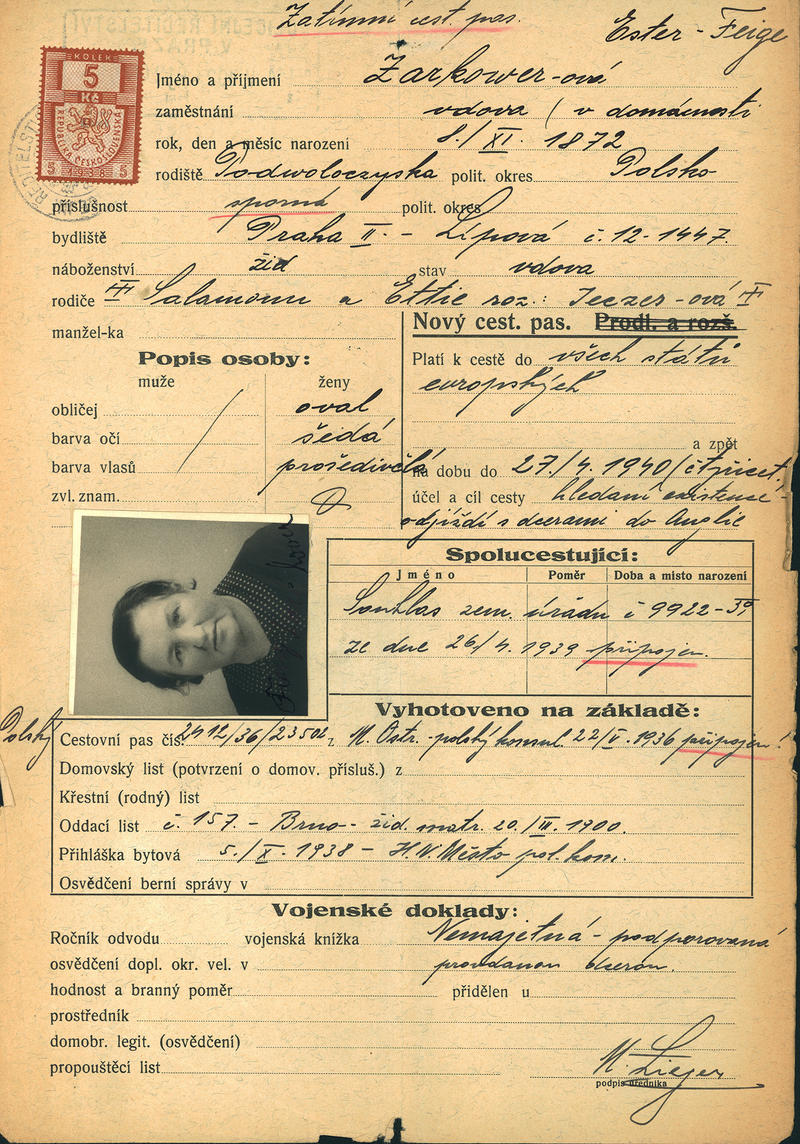 Zatímní cest. pas.
Ester - Feige
KOLEK
5
Kč
REPUBLIKA ČESKOSLOVENSKÁ
5 1938 5
Jméno a příjmení Zarkower-ová
zaměstnání vdova / v domácnosti
rok, den a měsíc narození 8./XI. 1872
rodiště Podwoloczyska polit. okres Polsko
příslušnost sporná polit. okres
bydliště Praha II. - Lípová č. 12-1447.
náboženství žid stav vdova
rodiče Salamonu a Ettie roz.: Jeczer-ová
manžel-ka
Nový cest. pas. Prodl. a rozš.
Popis osoby:
Platí k cestě do všech států
muže ženy
evropských
obličej oval
barva očí šedá
a zpět
barva vlasů prošedivělá
na dobu do 27./4. 1940 (čtyřicet)
zvl. znam.
účel a cíl cesty hledání existence -
odjíždí s dcerami do Anglie
Spolucestující:
Jméno Poměr Doba a místo narození
Souhlas zem. úřadu č 9922-39
ze dne 26/4. 1939 připojen.
Vyhotoveno na základě:
Polský Cestovní pas čís. 2412/36/23502 z M. Ostr. - polský konsul. 22/V. 1936 připojen!
Domovský list (potvrzení o domov. přísluš.) z
Křestní (rodný) list
Oddací list č. 157. - Brno - žid. matr. 20./III. 1900.
Přihláška bytová 5./X. 1938 - H. V. Město pol. kom.
Osvědčení berní správy v
Vojenské doklady:
Ročník odvodu vojenská knížka Nemajetná - podporovaná
osvědčení dopl. okr. vel. v provdanou dcerou.
hodnost a branný poměr přidělen u
prostředník
domobr. legit. (osvědčení)
propouštěcí list
podpis úředníka